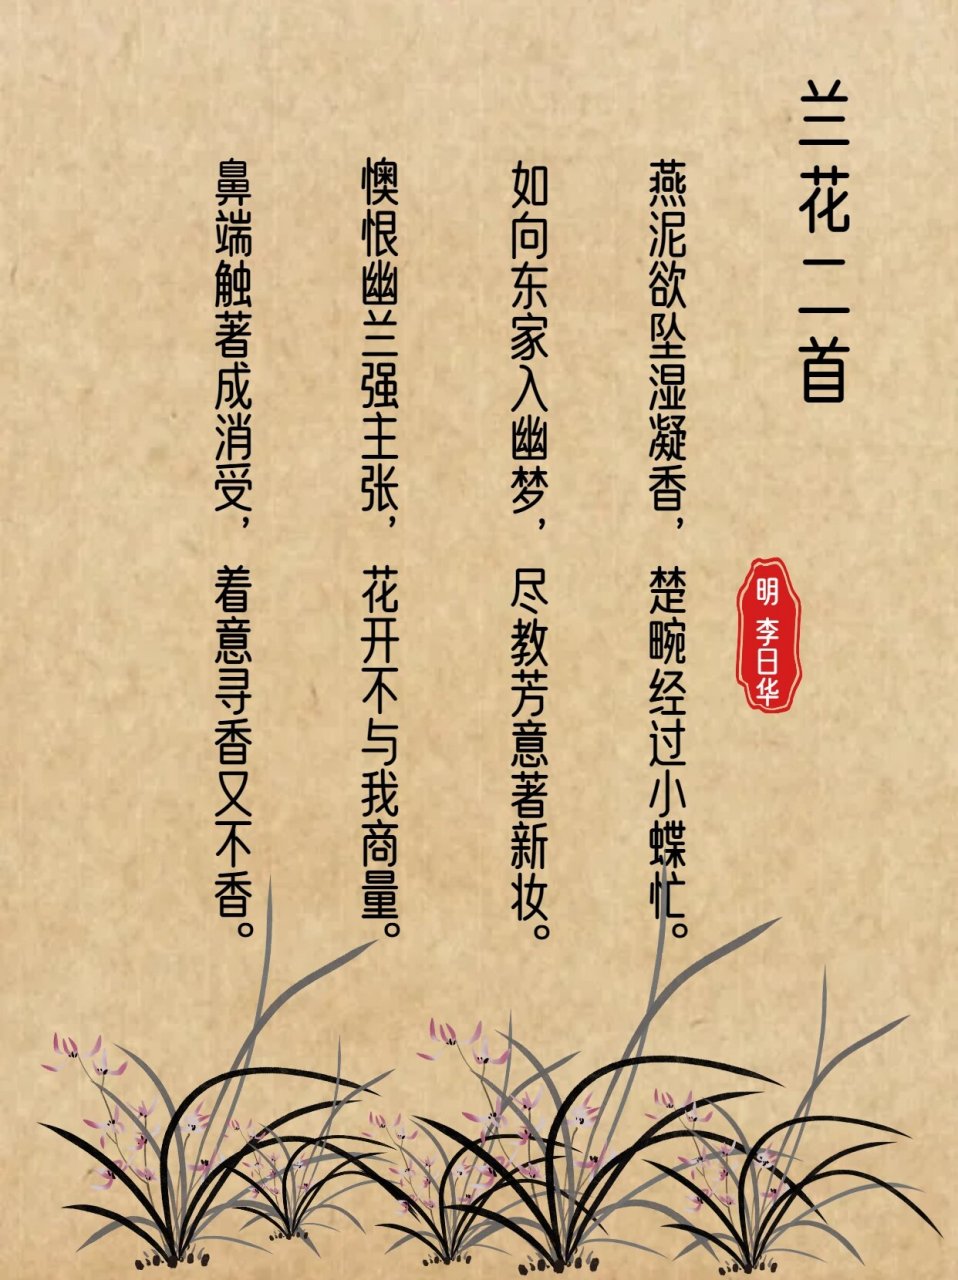 兰花二首
明 李日华
燕泥欲坠湿凝香，楚畹经过小蝶忙。
如向东家入幽梦，尽教芳意著新妆。
懊恨幽兰强主张，花开不与我商量。
鼻端触著成消受，着意寻香又不香。